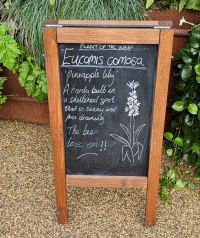 PLANT OF THE WEEK
Eucomis comosa
'Pineapple lily'
A hardy bulb in
a sheltered spot
that is sunny and
free draining
The bees
love em !!